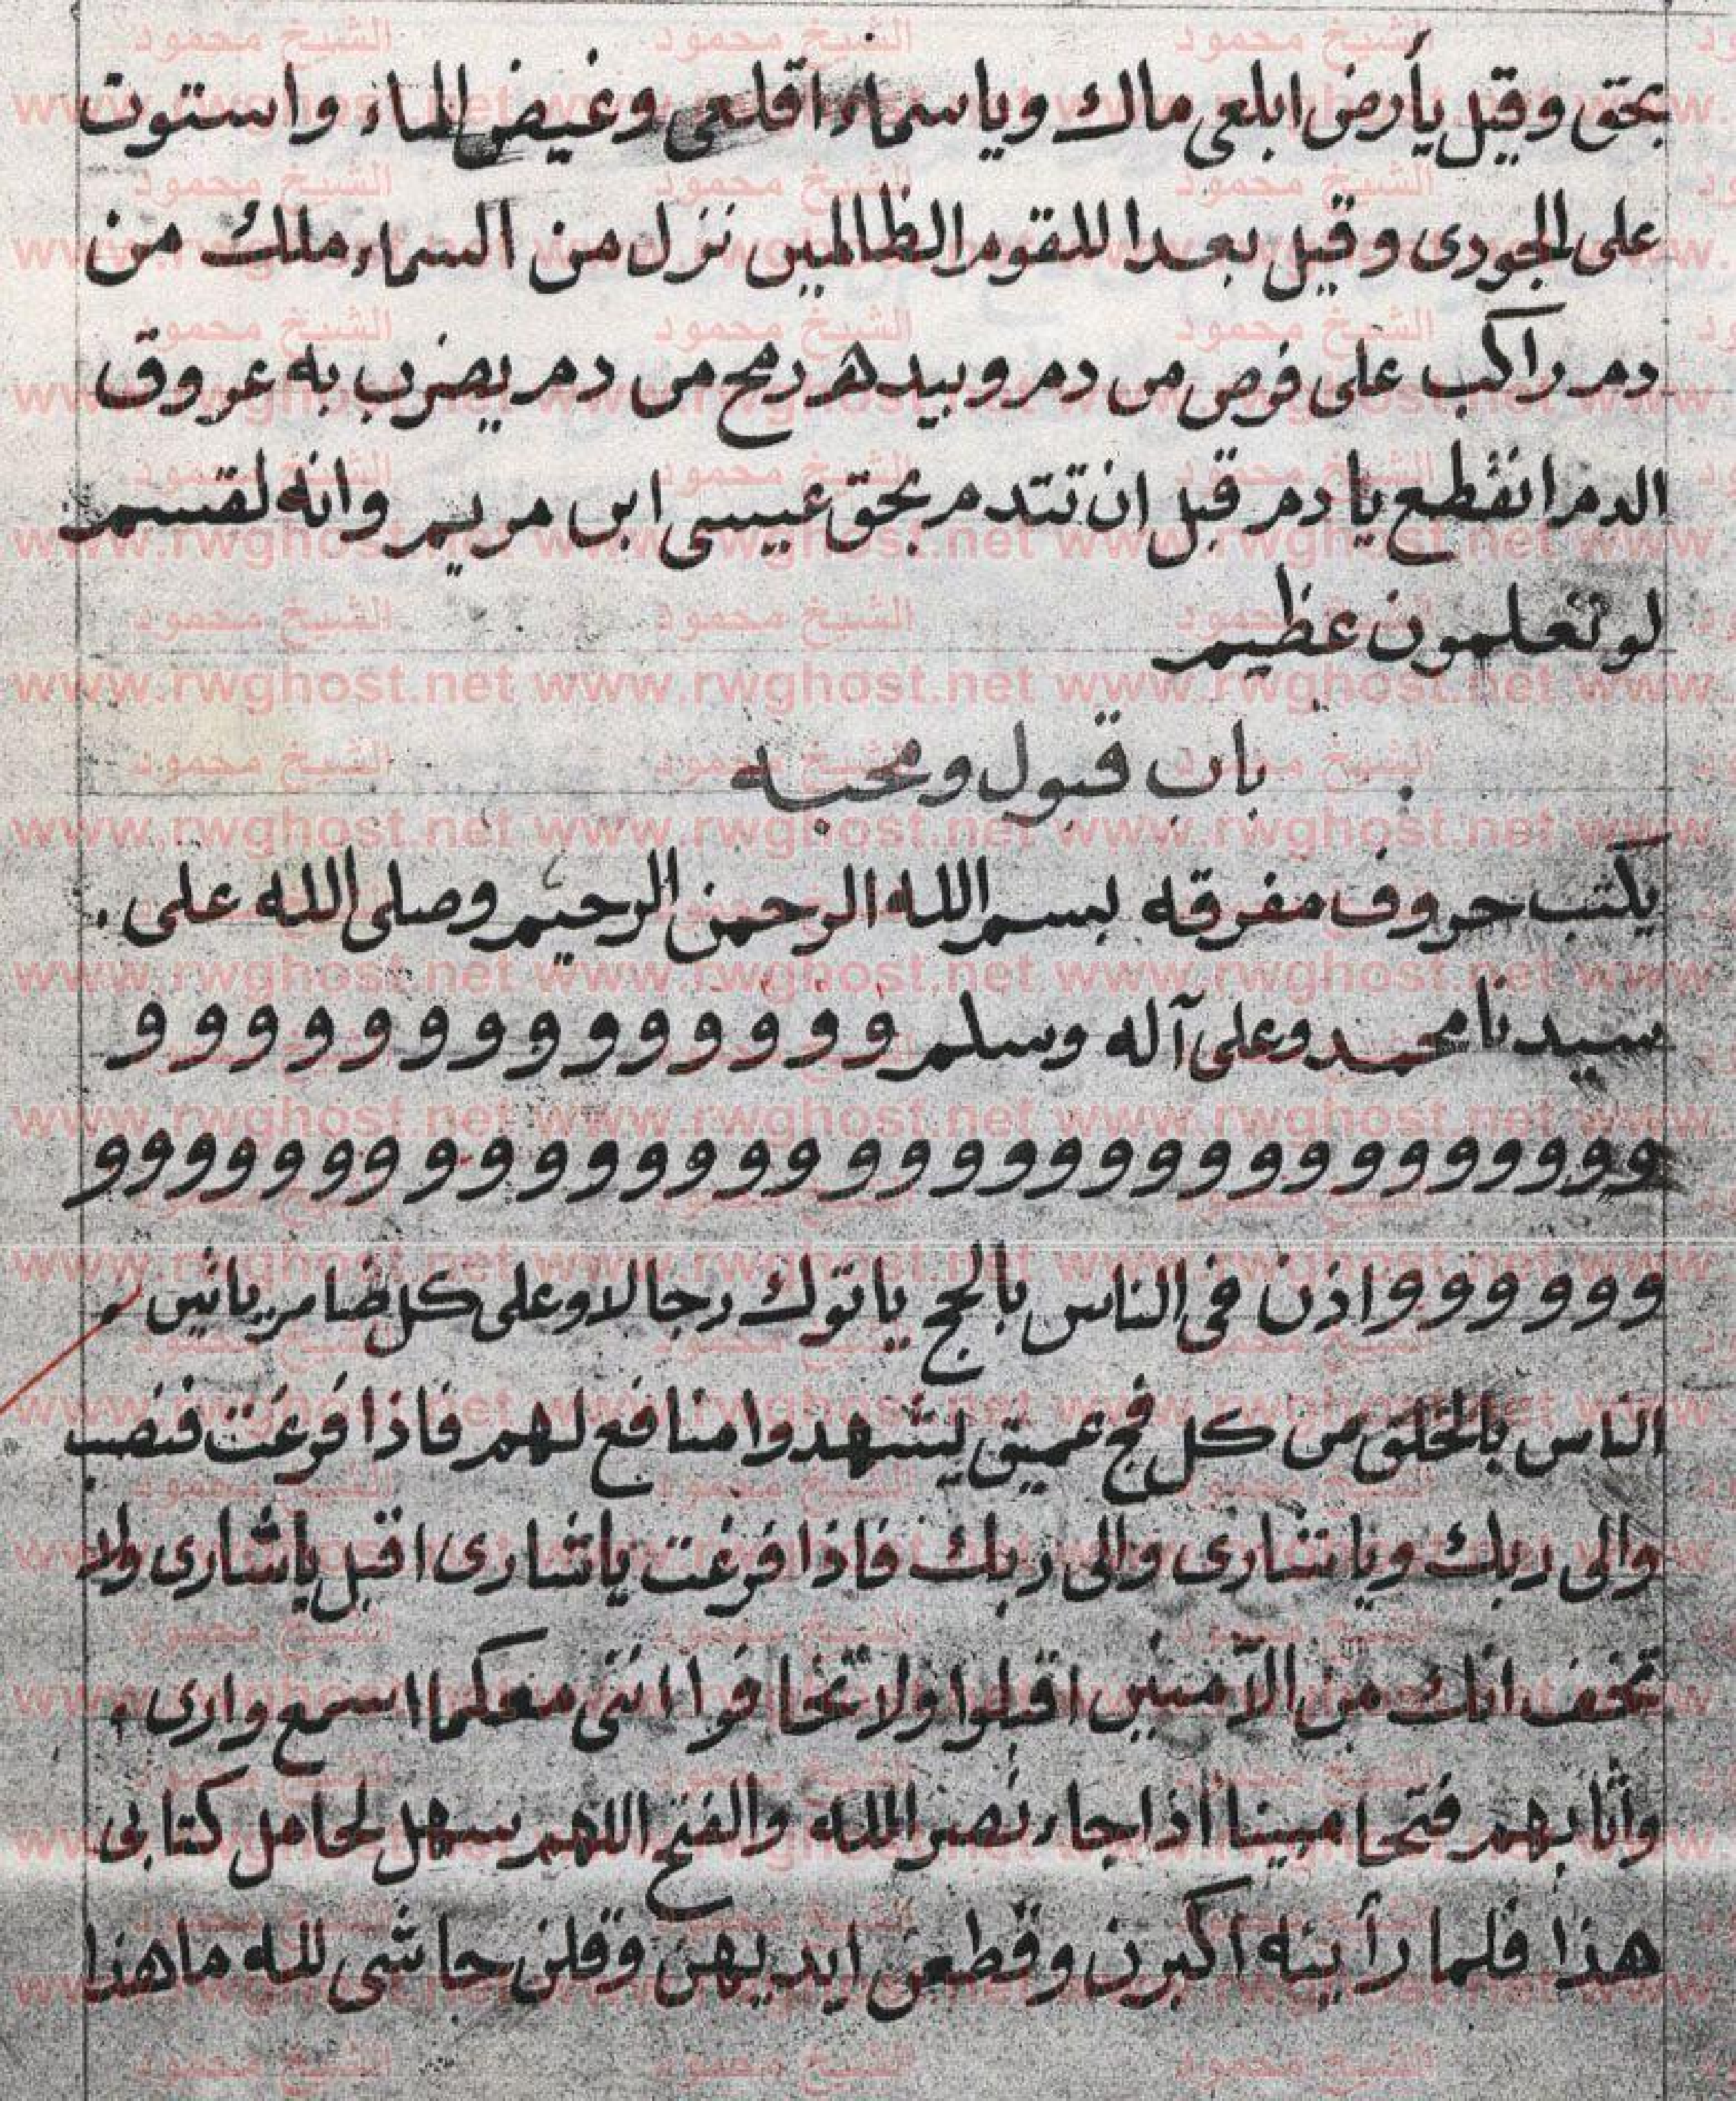 بحق وقيل يأرض ابلعى ماك وياسماء اقلعى وغيض الماء واستوت
على الجودى وقيل بعدا للقوم الظالمين نزل من السماء ملك من
دم راكب على فرص من دم وبيده رمح من دم يضرب به عروق
الدم انقطع يا دم قبل ان تتدم بحق عيسى ابن مريم وانه لقسم
لو تعلمون عظيم
باب قبول ومحبه
يكتب حروف مفرقه بسم الله الرحمن الرحيم وصلى الله على
سيدنا محمد وعلى آله وسلم و و و و و و و و و و و و و و
و و و و و و و و و و و و و و و و و و و و و و و و و و و و و و
و و و و و و اذن فى الناس بالحج ياتوك رجالا وعلى كل ضامر ياتين
الناس بالخلق من كل فج عميق ليشهدوا منافع لهم فاذا فرغت فنصب
والى ربك ويا تشارى والى ربك فاذا فرغت ياتشارى اقبل ياتشارى ولا
تخف انك من الآمنين اقبلوا ولا تخافوا اننى معكما اسمع وارى
وأثابهم فتحا مبينا أذا جاء نصر الله والفتح اللهم سهل لحامل كتابى
هذا فلما رأينه اكبرن وقطعن ايديهن وقلن حاشى لله ما هذا
الشيخ محمود
www.rwghost.net